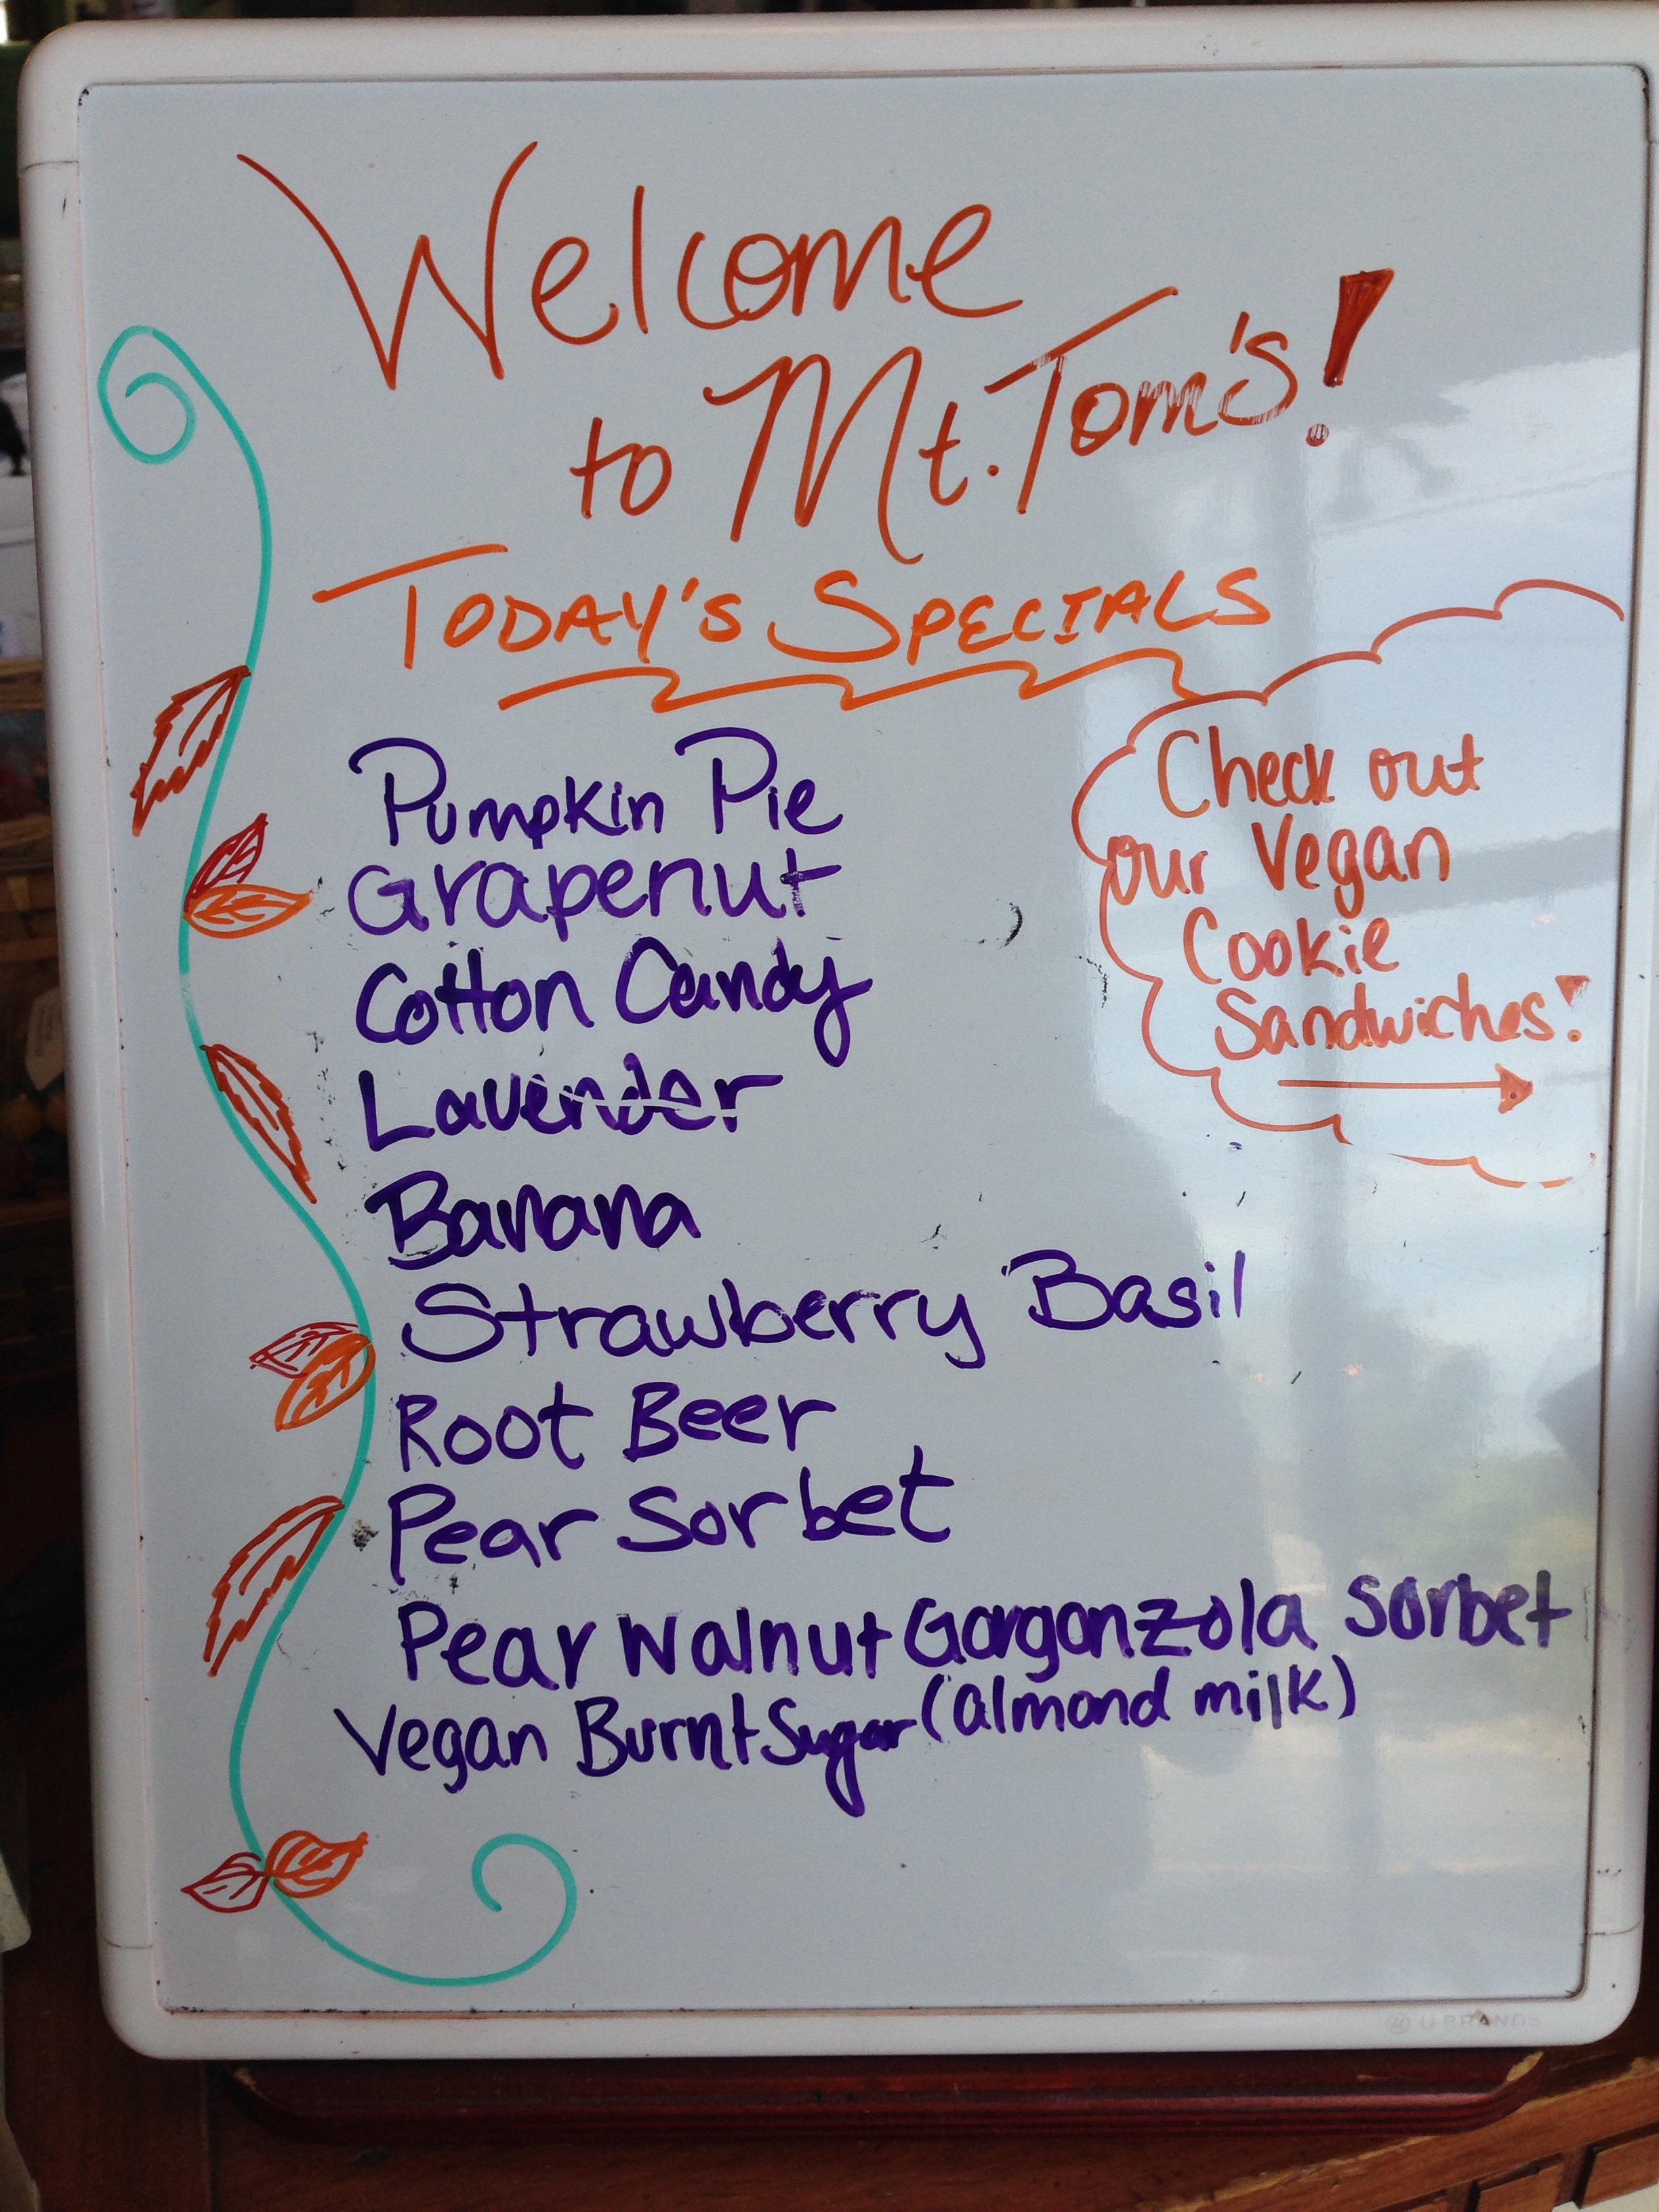 Welcome
to Mt. Tom's!
TODAY'S SPECIALS
Pumpkin Pie
Grapenut
Cotton Candy
Lavender
Banana
Strawberry Basil
Root Beer
Pear Sorbet
Pear Walnut Gorgonzola Sorbet
Vegan Burnt Sugar (almond milk)
Check out
our Vegan
Cookie
Sandwiches!
U BRANDS